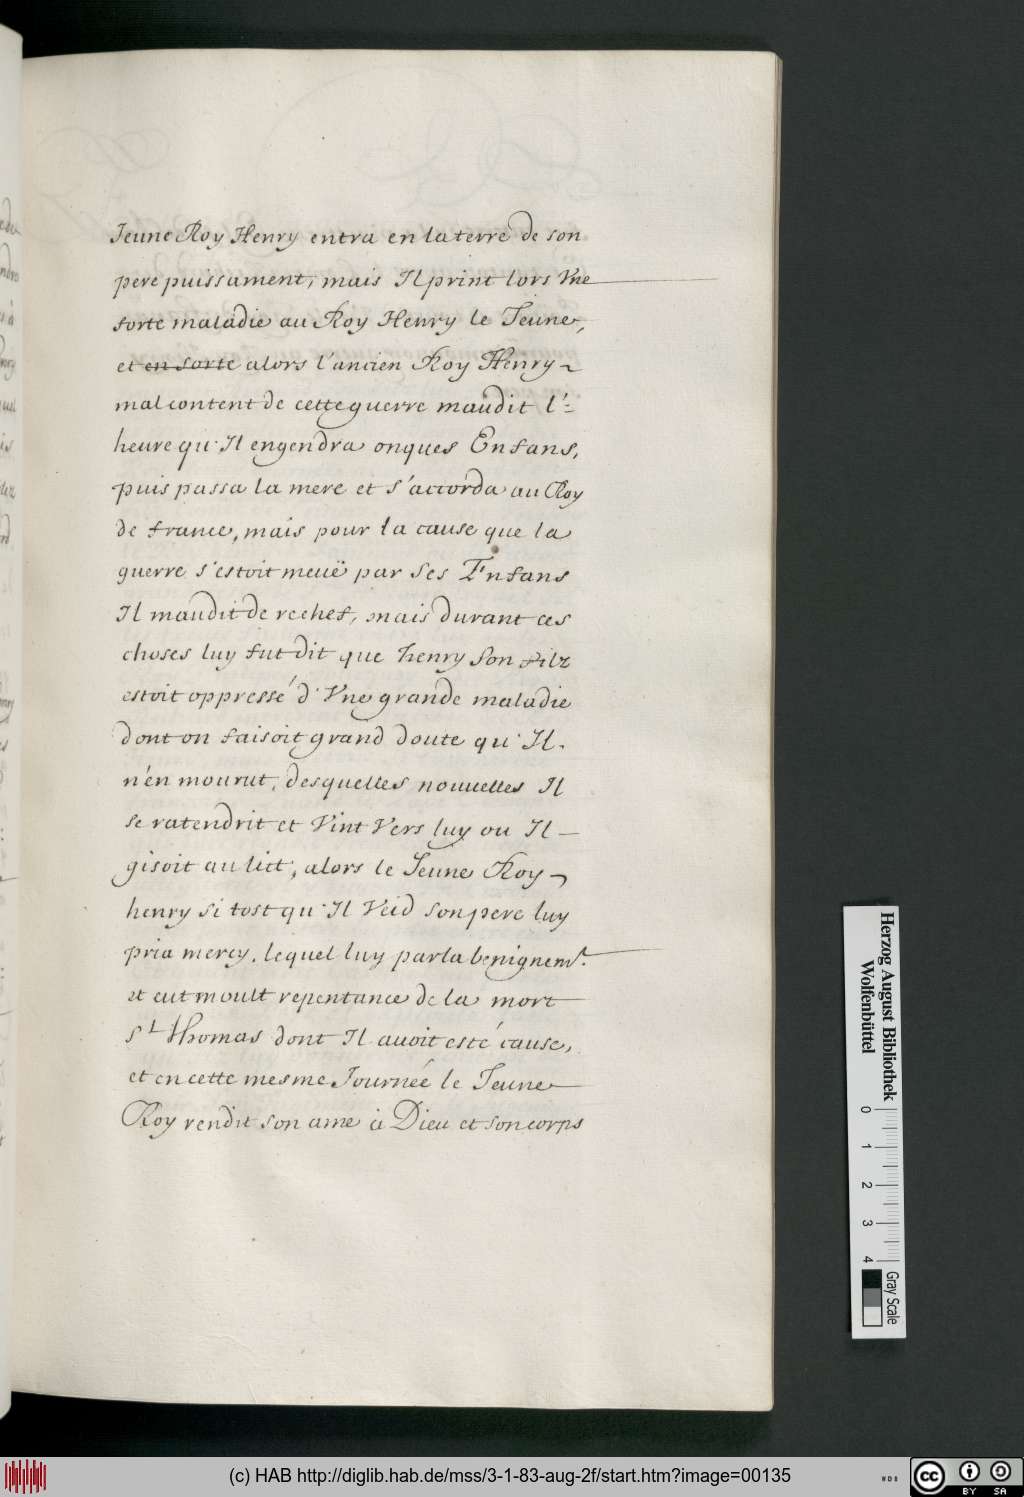 Jeune Roy Henry entra en la terre de son
pere puissament, mais Il print lors Vne
forte maladie au Roy Henry le Jeune,
et en sorte alors l'ancien Roy Henry
mal content de cette guerre maudit l'=
heure qu'Il engendra onques Enfans,
puis passa la mere et s'accorda au Roy
de france, mais pour la cause que la
guerre s'estoit meuë par Ses Enfans
Il maudit de rechef, mais durant ces
choses luy fut dit que henry Son filz
estoit oppressé d'Vne grande maladie
dont on faisoit grand doute qu'Il.
n'en mourut, desquelles nouuelles Il
se ratendrit et Vint Vers luy ou Il —
gisoit au lict, alors le Jeune Roy
henry si tost qu'Il Veid son pere luy
pria mercy, lequel luy parla benignemt.
et eut moult repentance de la mort
St Thomas dont Il auoit esté cause,
et en cette mesme Journée le Jeune
Roy rendit son ame à Dieu et son corps
Herzog August Bibliothek
Wolfenbüttel
0 1 2 3 4
Gray Scale
(c) HAB http://diglib.hab.de/mss/3-1-83-aug-2f/start.htm?image=00135
WDB
cc BY SA